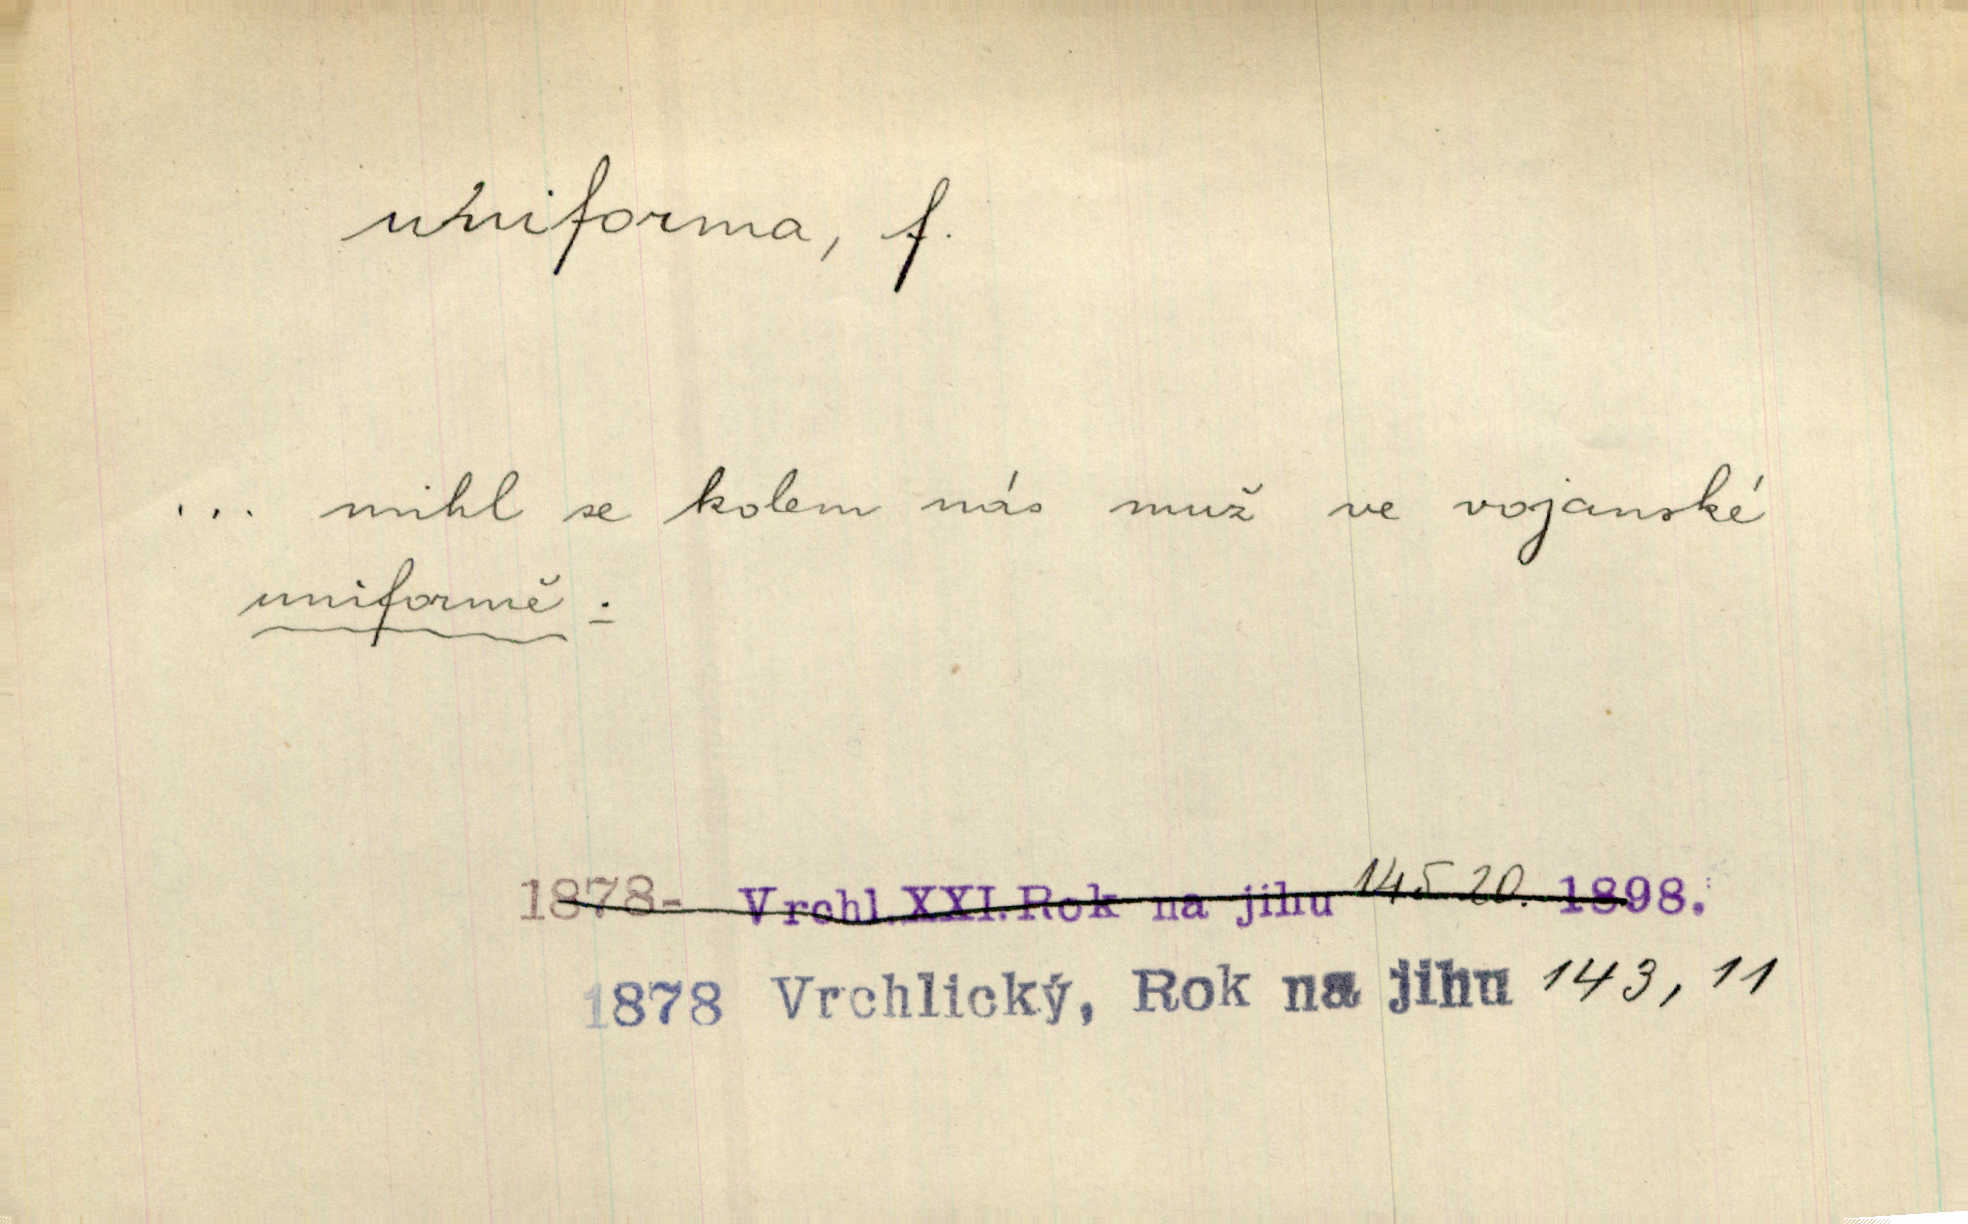 uniforma, f.
... mihl se kolem nás muž ve vojanské
uniformě :
1878- Vrchl.XXI.Rok na jihu 145 20. 1898.
1878 Vrchlický, Rok na jihu 143, 11